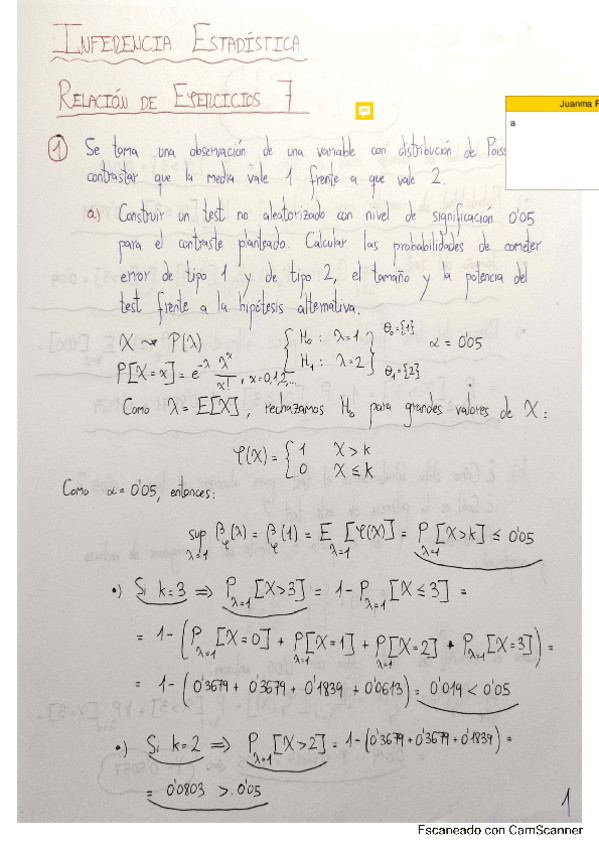 INFERENCIA ESTADÍSTICA
RELACIÓN DE EJERCICIOS 7
Juanma
a
1 Se toma una observación de una variable con distribución de
contrastar que la media vale 1 frente a que vale 2.
a) Construir un test no aleatorizado con nivel de significación 0'05
para el contraste planteado. Calcular las probabilidades de cometer
error de tipo 1 y de tipo 2, el tamaño y la potencia del
test frente a la hipótesis alternativa.
X ~ P(λ) { H₀: λ=1 } Θ₀={1} α = 0'05
{ H₁: λ=2 } Θ₁={2}
P[X=x] = e^-λ λ^x/x!, x=0,1,2,...
Como λ = E[X], rechazamos H₀ para grandes valores de X:
φ(X) = { 1 X>k
0 X≤k
Como α=0'05, entonces:
sup_λ=1 β_φ(λ) = β_φ(1) = E_λ=1 [φ(X)] = P_λ=1 [X>k] ≤ 0'05
•) Si k=3 ⇒ P_λ=1 [X>3] = 1 - P_λ=1 [X≤3] =
= 1 - (P_λ=1 [X=0] + P_λ=1 [X=1] + P_λ=1 [X=2] + P_λ=1 [X=3]) =
= 1 - (0'3679 + 0'3679 + 0'1839 + 0'0613) = 0'019 < 0'05
•) Si k=2 ⇒ P_λ=1 [X>2] = 1-(0'3679+0'3679+0'1839) =
= 0'0803 > 0'05
1
Escaneado con CamScanner